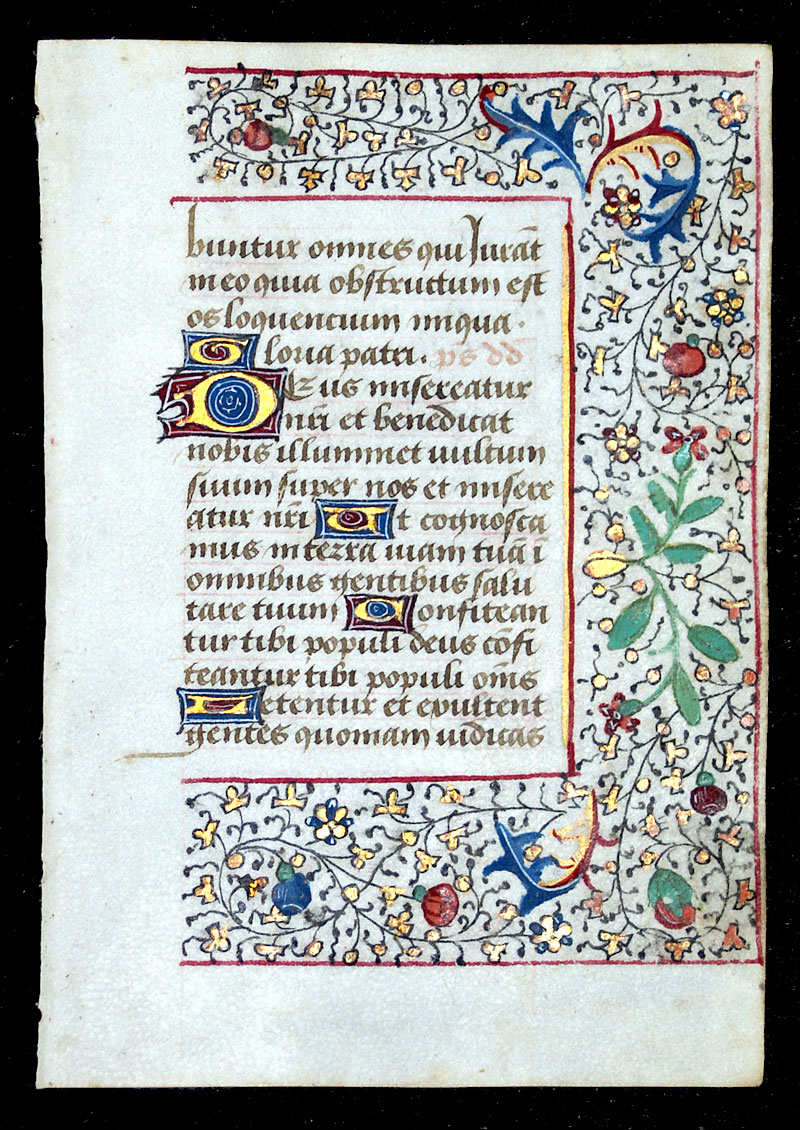 buntur omnes qui Jurāt
meo quia obstructum est
os loquencium iniqua.
Gloria patri. ps dd
Deus misereatur
nr̄i et benedicat
nobis illuminet uultum
suum super nos et misere
atur nr̄i Et cognosca
mus in terra uiam tuā ī
omnibus gentibus salu
tare tuum Confitean
tur tibi populi deus cōfi
teantur tibi populi om̄s
Letentur et exultent
gentes quoniam iudicas